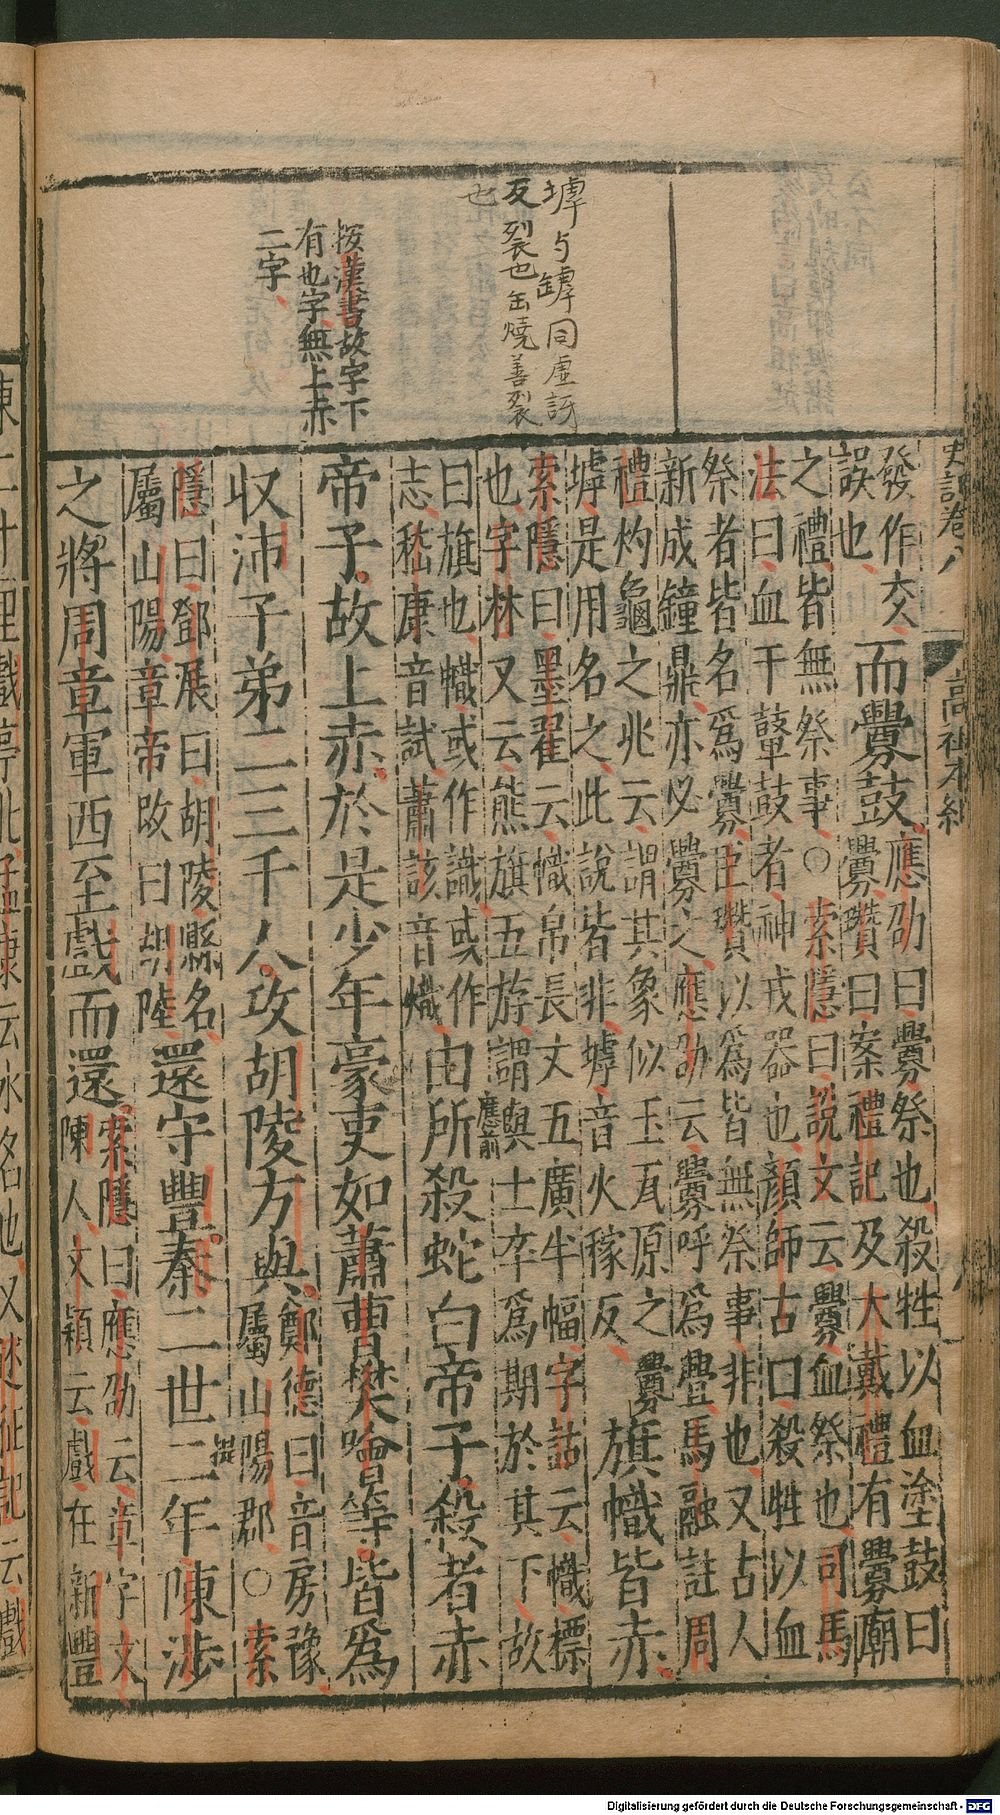 史記卷八
高祖本紀
八
墟与罅同虛訝
反裂也缶燒善裂
也
按漢書故字下
有也字無上赤
二字
發作交
誤也
而釁鼓
應劭曰釁祭也殺牲以血塗鼓曰
釁瓚曰案禮記及大戴禮有釁廟
之禮皆無祭事○索隱曰說文云釁血祭也司馬
法曰血于鼙鼓者神戎器也顏師古曰殺牲以血
祭者皆名爲釁臣瓚以爲皆無祭事非也又古人
新成鐘鼎亦必釁之應劭云釁呼爲舋馬融註周
禮灼龜之兆云謂其象似玉瓦原之釁
墟是用名之此說皆非墟音火稼反
旗幟皆赤
索隱曰墨翟云幟帛長丈五廣半幅字詁云幟標
也字林又云熊旗五斿謂與士卒爲期於其下故
應前
曰旗也幟或作識或作
志嵇康音試蕭該音熾
由所殺蛇白帝子殺者赤
帝子故上赤於是少年豪吏如蕭曹樊噲等皆爲
收沛子弟二三千人攻胡陵方與
鄭德曰音房豫
屬山陽郡○索
隱曰鄧展曰胡陵縣名
屬山陽章帝改曰胡陸
還守豐秦二世二年陳涉
提
之將周章軍西至戲而還
索隱曰應劭云章字文
陳人文穎云戲在新豐
Digitalisierung gefördert durch die Deutsche Forschungsgemeinschaft - DFG